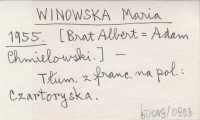 WINOWSKA Maria
1955. [Brat Albert = Adam
Chmielowski.] —
Tłum. z franc. na pol.:
Czartoryska.